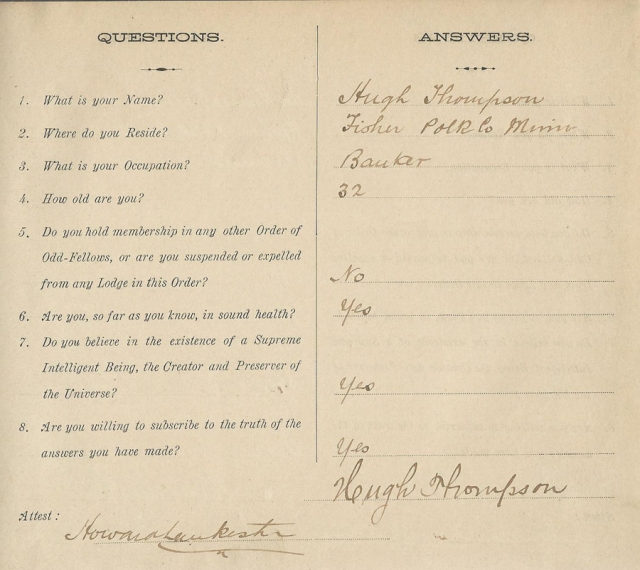 QUESTIONS. ANSWERS.
1. What is your Name? Hugh Thompson
2. Where do you Reside? Fisher Polk Co Minn
3. What is your Occupation? Banker
4. How old are you? 32
5. Do you hold membership in any other Order of
Odd-Fellows, or are you suspended or expelled
from any Lodge in this Order? No
6. Are you, so far as you know, in sound health? Yes
7. Do you believe in the existence of a Supreme
Intelligent Being, the Creator and Preserver of
the Universe? Yes
8. Are you willing to subscribe to the truth of the
answers you have made? Yes
Hugh Thompson
Attest:
Howard